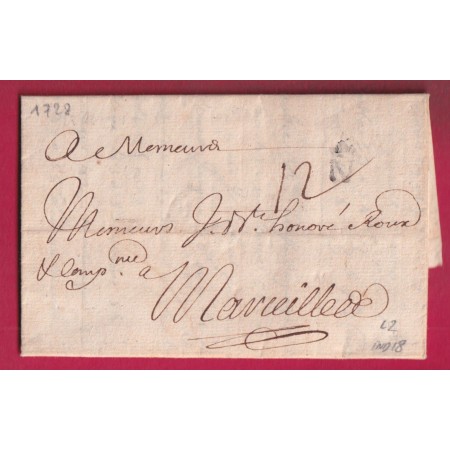 1728
A Messieurs
12
Messieurs J. Bte. honoré Roux
& Comp.nie a
Marseille
L2
IND 18